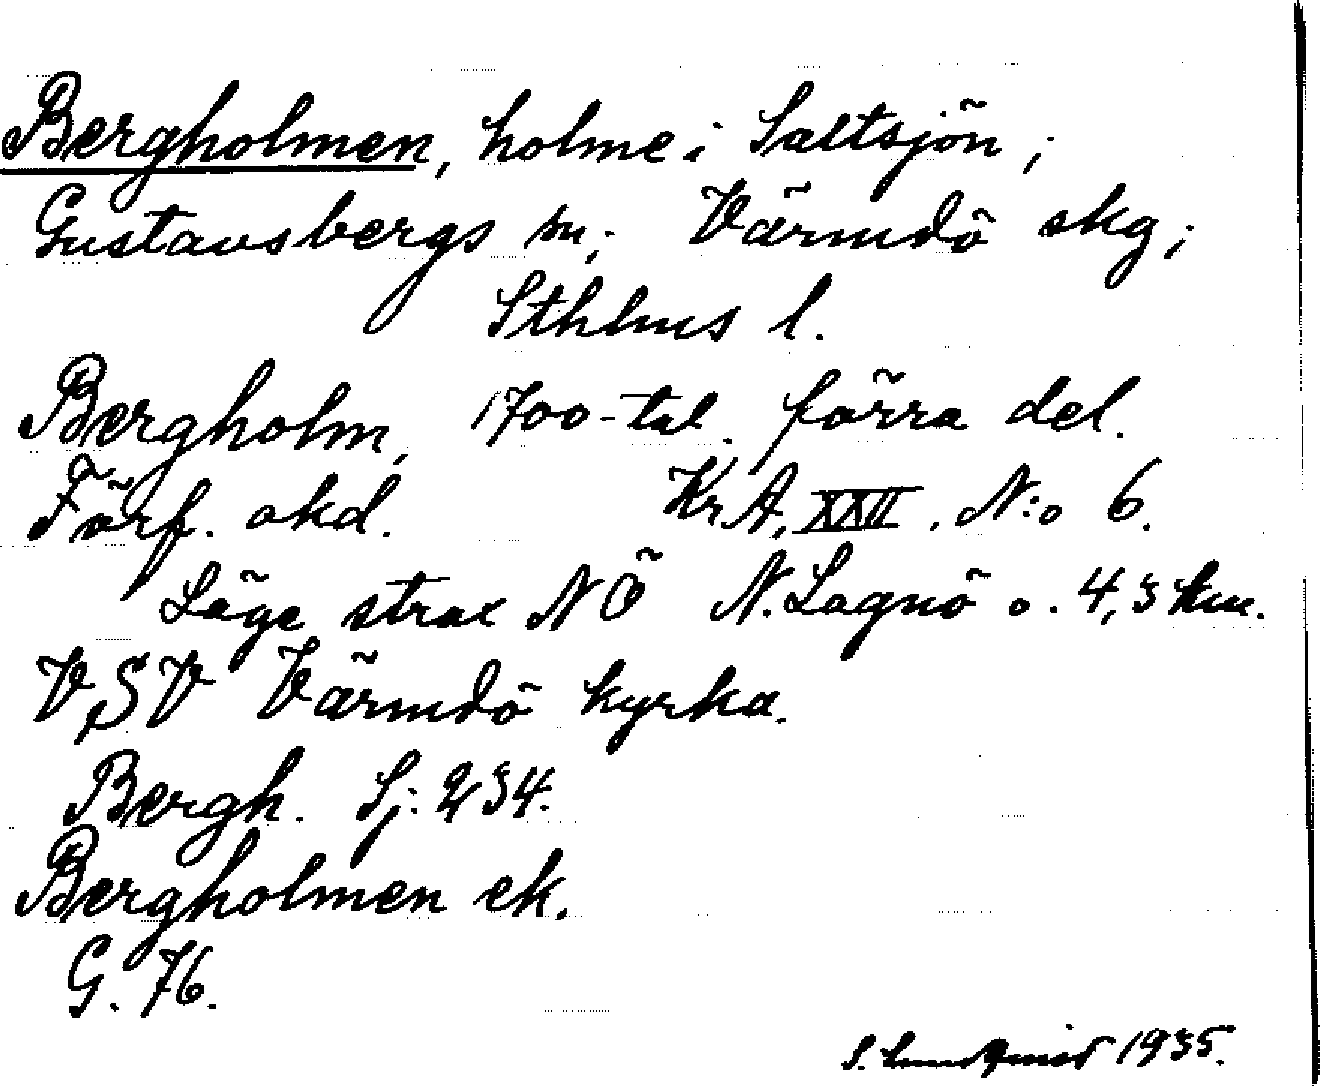 Bergholmen, holme i Saltsjön;
Gustavsbergs sn; Värmdö skg;
Sthlms l.
Bergholm, 1700-tal. förra del.
Förf. okd. KrA, XXII, N:o 6.
Läge strax NÖ N. Lagnö o. 4,3 km.
VSV Värmdö kyrka.
Bergh. Sj. 234.
Bergholmen ek.
G. 76.
S. Lundqvist 1935.